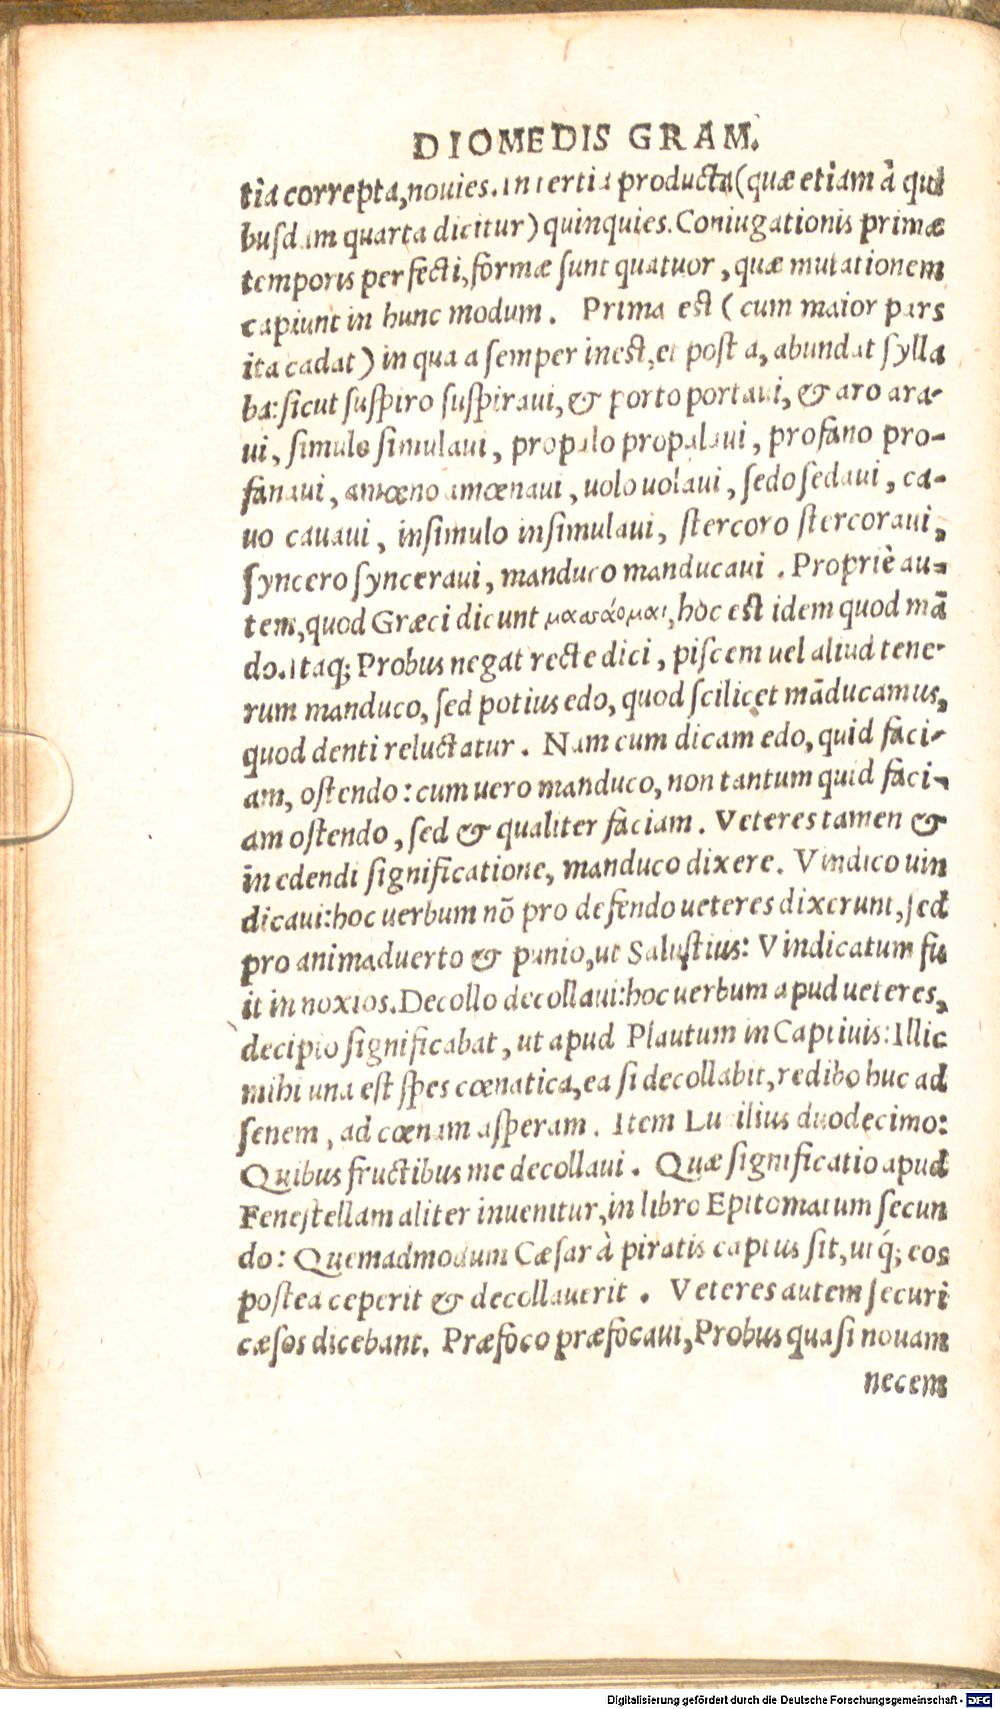 DIOMEDIS GRAM.
tia correpta, nouies. In tertia producta (quæ etiam à qui
busdam quarta dicitur) quinquies. Coniugationis primæ
temporis perfecti, formæ sunt quatuor, quæ mutationem
capiunt in hunc modum. Prima est (cum maior pars
ita cadat) in qua a semper inest, et post a, abundat sylla
ba: sicut suspiro suspiraui, & porto portaui, & aro ara-
ui, simulo simulaui, propalo propalaui, profano pro-
fanaui, amœno amœnaui, uolo uolaui, sedo sedaui, ca-
uo cauaui, insimulo insimulaui, stercoro stercoraui,
syncero synceraui, manduco manducaui. Propriè au-
tem, quod Græci dicunt μασάομαι, hoc est idem quod mā
do. Itaq; Probus negat recte dici, piscem uel aliud tene-
rum manduco, sed potius edo, quod scilicet māducamus,
quod denti reluctatur. Nam cum dicam edo, quid faci-
am, ostendo: cum uero manduco, non tantum quid faci-
am ostendo, sed & qualiter faciam. Veteres tamen &
in edendi significatione, manduco dixere. Vindico uin
dicaui: hoc uerbum nō pro defendo ueteres dixerunt, sed
pro animaduerto & punio, ut Salustius: Vindicatum fu
it in noxios. Decollo decollaui: hoc uerbum apud ueteres,
decipio significabat, ut apud Plautum in Captiuis: Illic
mihi una est spes cœnatica, ea si decollabit, redibo huc ad
senem, ad cœnam asperam. Item Lucilius duodecimo:
Quibus fructibus me decollaui. Quæ significatio apud
Fenestellam aliter inuenitur, in libro Epitomatum secun
do: Quemadmodum Cæsar à piratis captus sit, utq́; eos
postea ceperit & decollauerit. Veteres autem securi
cæsos dicebant. Præfoco præfocaui, Probus quasi nouam
necem
Digitalisierung gefördert durch die Deutsche Forschungsgemeinschaft - DFG